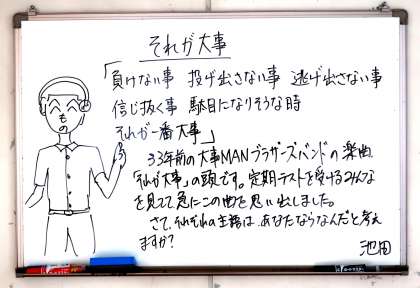 それが大事
「負けない事 投げ出さない事 逃げ出さない事
信じ抜く事 駄目になりそうな時
それが一番大事」
33年前の大事MANブラザーズバンドの楽曲
「それが大事」の頭です。定期テストを受けるみんな
を見てて急にこの曲を思い出しました。
さて、それぞれの主語は、あなたならなんだと考え
ますか?
池田